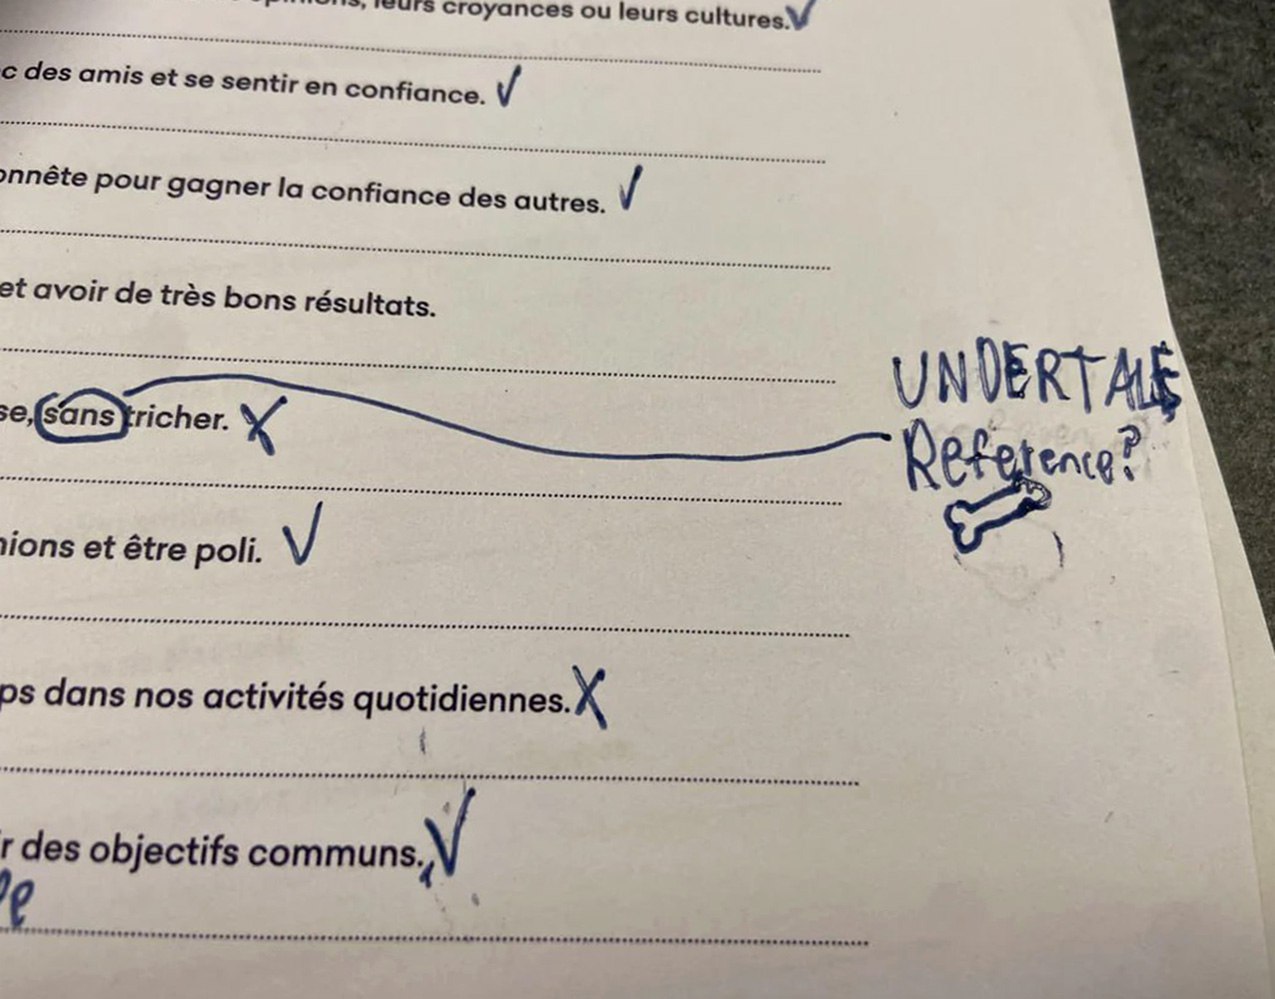 leurs croyances ou leurs cultures.
des amis et se sentir en confiance.
pour gagner la confiance des autres.
et avoir de très bons résultats.
sans tricher.
UNDERTALE
Reference?
et être poli.
dans nos activités quotidiennes.
des objectifs communs.